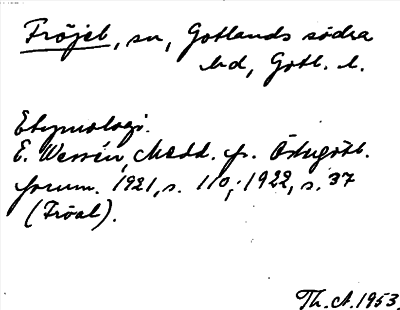 Fröjel, sn, Gotlands södra
hd, Gotl. l.
Etymologi.
E. Wessén, Medd. fr. Östergötl.
fornm. 1921, s. 110; 1922, s. 37
(Fröal).
Th. A. 1953.